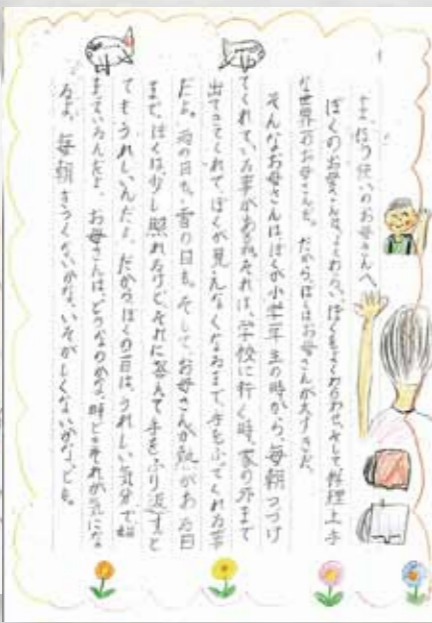 まほう使いのお母さんへ
ぼくのお母さんは、よくわらい、ぼくをよくわらわせ、そして料理上手
な世界一のお母さんだ。だから、ぼくはお母さんが大すきだ。
そんなお母さんはぼくが小学一年生の時から、毎朝つづけ
てくれている事がある。それは、学校に行く時、家の外まで
出てきてくれて、ぼくが見えなくなるまで、手をふってくれる事
だよ。雨の日も、雪の日も、そして、お母さんが熱がある日
まで、ぼくは、少し照れるけど、それに答えて手をふり返すと
てもうれしいんだよ。だから、ぼくの一日は、うれしい気分で始
まっているんだよ。お母さんは、どうなのかな、時どきそれが気にな
るよ。毎朝きつくないかな、いそがしくないかな、とも。